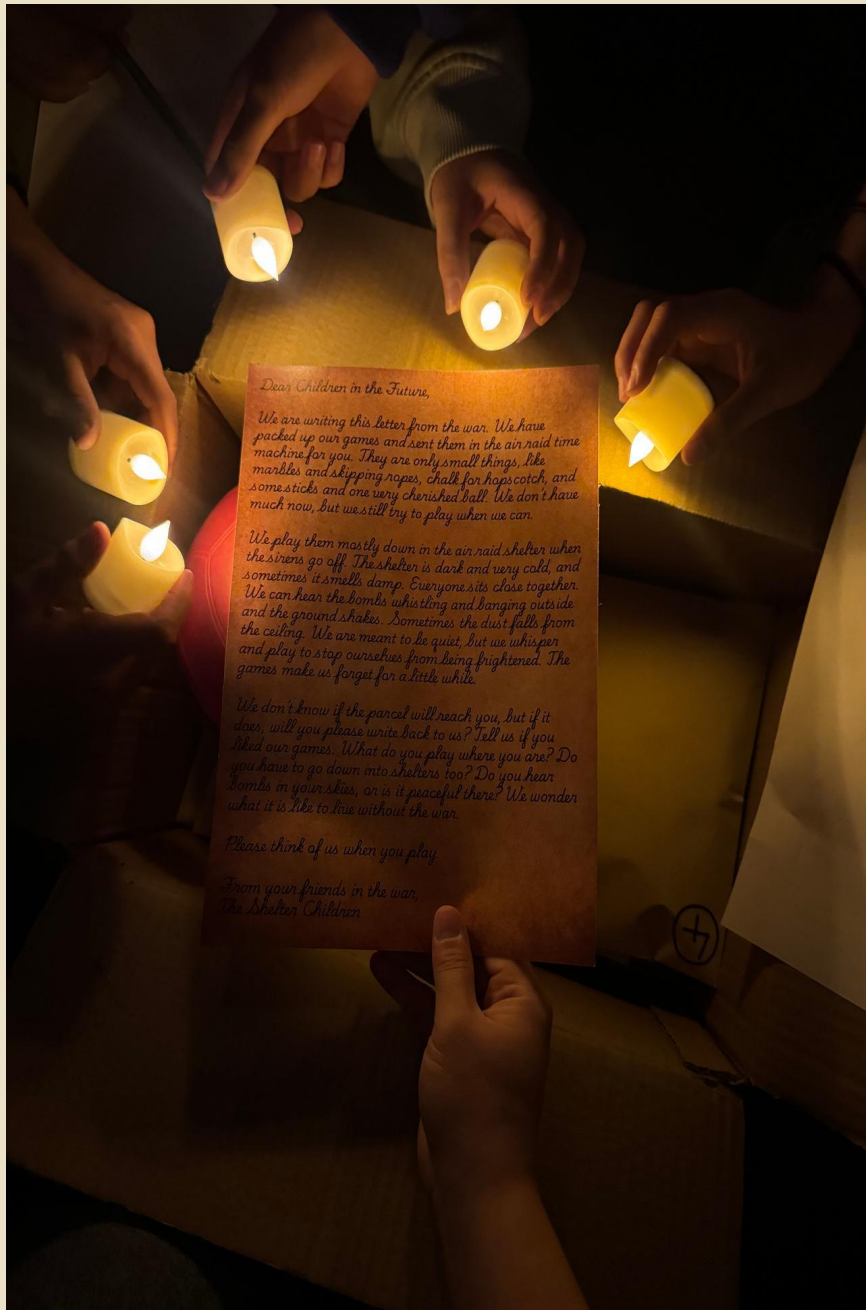 Dear Children in the Future,
We are writing this letter from the war. We have
packed up our games and sent them in the air raid time
machine for you. They are only small things, like
marbles and skipping ropes, chalk for hopscotch, and
some sticks and one very cherished ball. We don't have
much now, but we still try to play when we can.
We play them mostly down in the air raid shelter when
the sirens go off. The shelter is dark and very cold, and
sometimes it smells damp. Everyone sits close together.
We can hear the bombs whistling and banging outside
and the ground shakes. Sometimes the dust falls from
the ceiling. We are meant to be quiet, but we whisper
and play to stop ourselves from being frightened. The
games make us forget for a little while.
We don't know if the parcel will reach you, but if it
does, will you please write back to us? Tell us if you
liked our games. What do you play where you are? Do
you have to go down into shelters too? Do you hear
bombs in your skies, or is it peaceful there? We wonder
what it is like to live without the war.
Please think of us when you play
From your friends in the war,
The Shelter Children
4